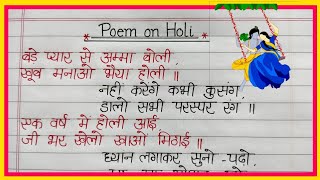 * Poem on Holi *
बडे प्यार से अम्मा बोली,
खूब मनाओ भैया होली ॥
नही करेंगे कभी कुसंग,
डालो सभी परस्पर रंग ॥
एक वर्ष में होली आई
जी भर खेलो खाओ मिठाई ॥
ध्यान लगाकर सुनो -पढो,